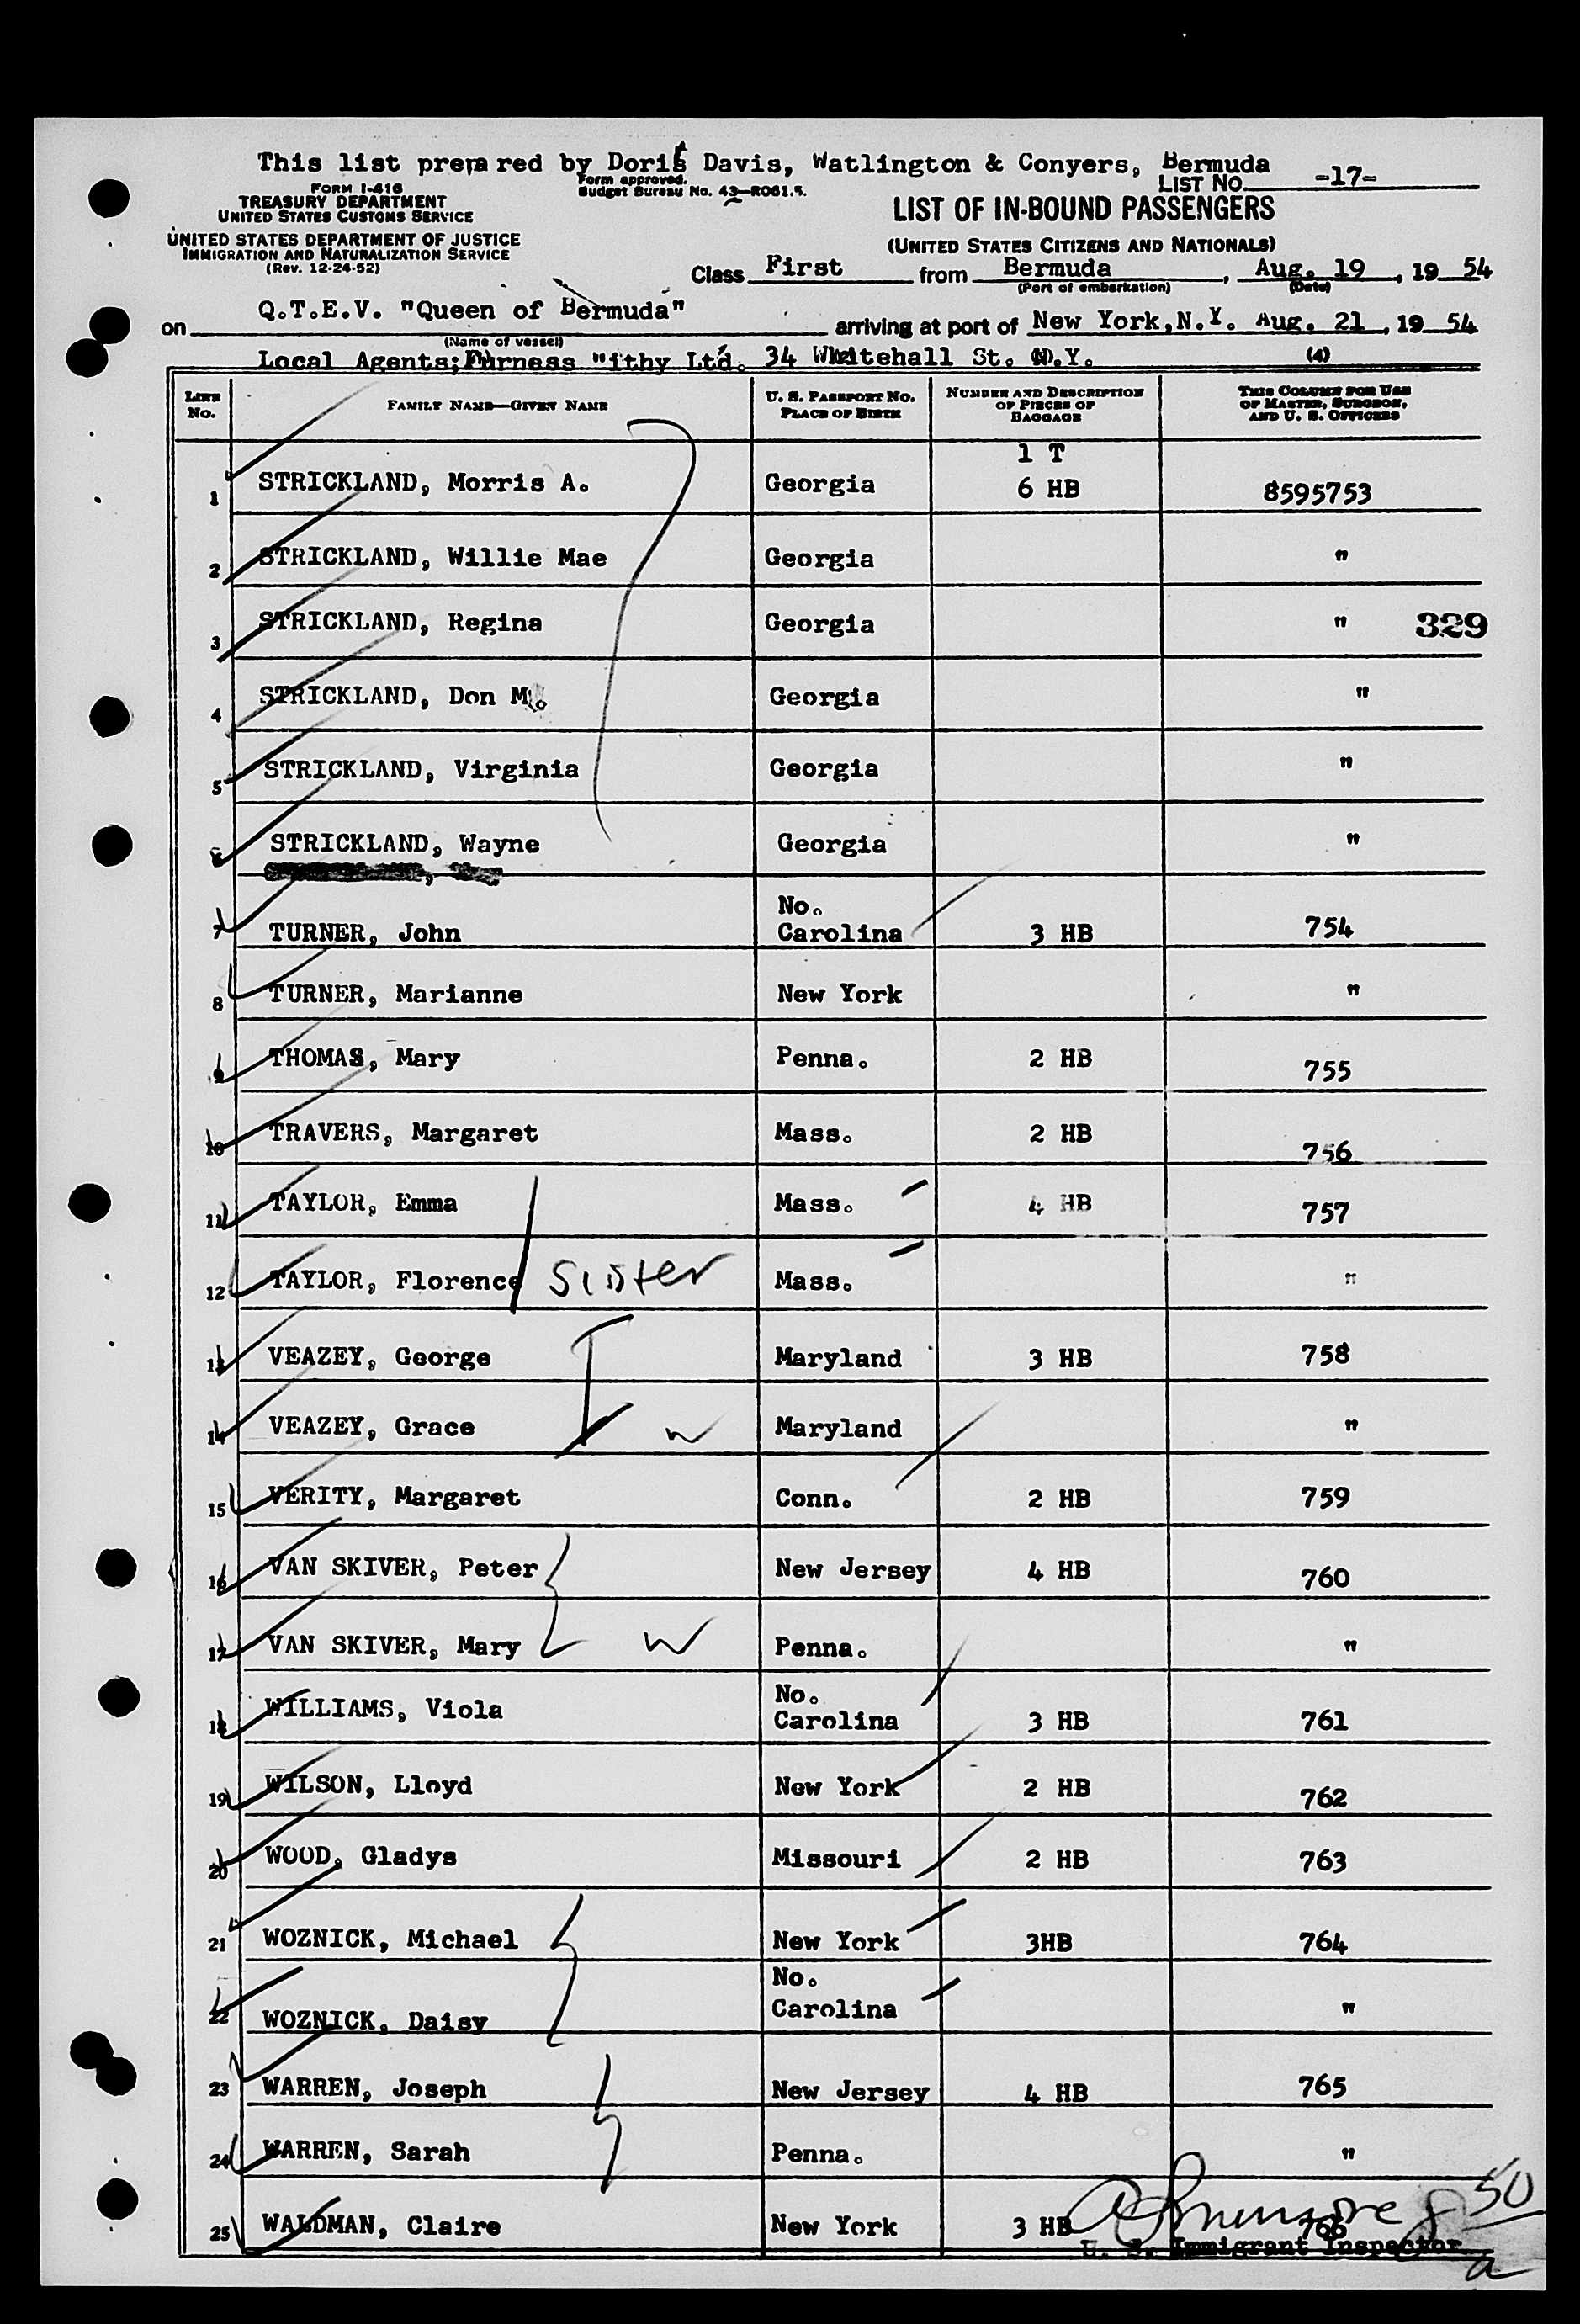 This list prepa red by Doris Davis, Watlington & Conyers, Bermuda
FORM I-416
TREASURY DEPARTMENT
UNITED STATES CUSTOMS SERVICE
UNITED STATES DEPARTMENT OF JUSTICE
IMMIGRATION AND NATURALIZATION SERVICE
(Rev. 12-24-52)
Form approved.
Budget Bureau No. 43-R061.5.
LIST NO. -17-
LIST OF IN-BOUND PASSENGERS
(UNITED STATES CITIZENS AND NATIONALS)
Class First from Bermuda, Aug. 19, 19 54
(Port of embarkation) (Date)
on Q.T.E.V. "Queen of Bermuda" arriving at port of New York, N.Y. Aug. 21, 19 54
(Name of vessel)
Local Agents; Furness "ithy Ltd. 34 Whitehall St. N.Y. (4)
LINE No. FAMILY NAME—GIVEN NAME U. S. PASSPORT NO. PLACE OF BIRTH NUMBER AND DESCRIPTION OF PIECES OF BAGGAGE THIS COLUMN FOR USE OF MASTER, SURGEON, AND U. S. OFFICERS
1 STRICKLAND, Morris A. Georgia 1 T 6 HB 8595753
2 STRICKLAND, Willie Mae Georgia "
3 STRICKLAND, Regina Georgia " 329
4 STRICKLAND, Don M. Georgia "
5 STRICKLAND, Virginia Georgia "
6 STRICKLAND, Wayne Georgia "
7 TURNER, John No. Carolina 3 HB 754
8 TURNER, Marianne New York "
9 THOMAS, Mary Penna. 2 HB 755
10 TRAVERS, Margaret Mass. 2 HB 756
11 TAYLOR, Emma Mass. 4 HB 757
12 TAYLOR, Florence Sister Mass. "
13 VEAZEY, George Maryland 3 HB 758
14 VEAZEY, Grace w Maryland "
15 VERITY, Margaret Conn. 2 HB 759
16 VAN SKIVER, Peter New Jersey 4 HB 760
17 VAN SKIVER, Mary w Penna. "
18 WILLIAMS, Viola No. Carolina 3 HB 761
19 WILSON, Lloyd New York 2 HB 762
20 WOOD, Gladys Missouri 2 HB 763
21 WOZNICK, Michael New York 3HB 764
22 WOZNICK, Daisy No. Carolina "
23 WARREN, Joseph New Jersey 4 HB 765
24 WARREN, Sarah Penna. "
25 WALDMAN, Claire New York 3 HB 766
50
U. S. Immigrant Inspector